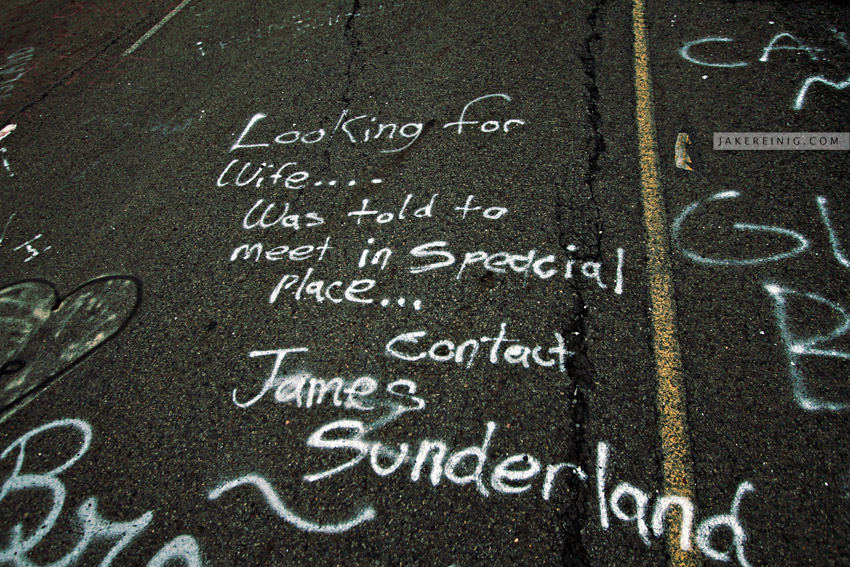 Looking for
Wife....
Was told to
meet in Spedcial
place...
Contact
James
Sunderland
~
JAKEREINIG.COM
CA
GU
BE
Br